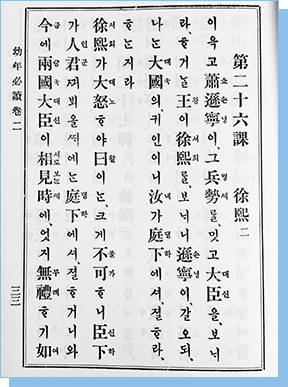 第二十六課 徐熙 二
이윽고蕭遜寧이, 그兵勢를, 밋고大臣을, 보ᄂᆡ
라, ᄒᆞ거ᄂᆞᆯ王이徐熙를, 보ᄂᆡ니遜寧이, 갈오ᄃᆡ,
나는大國의, 귀人이니汝가庭下에셔, 절ᄒᆞ라,
ᄒᆞᄂᆞᆫ지라
徐熙가大怒ᄒᆞ야曰이는, 크게不可ᄒᆞ니臣下
가人君ᄭᅴ뵈올ᄯᅢ에는庭下에셔, 절ᄒᆞ거니와
今에兩國大臣이相見時에엇지無禮ᄒᆞ기如
幼年必讀卷二
三三